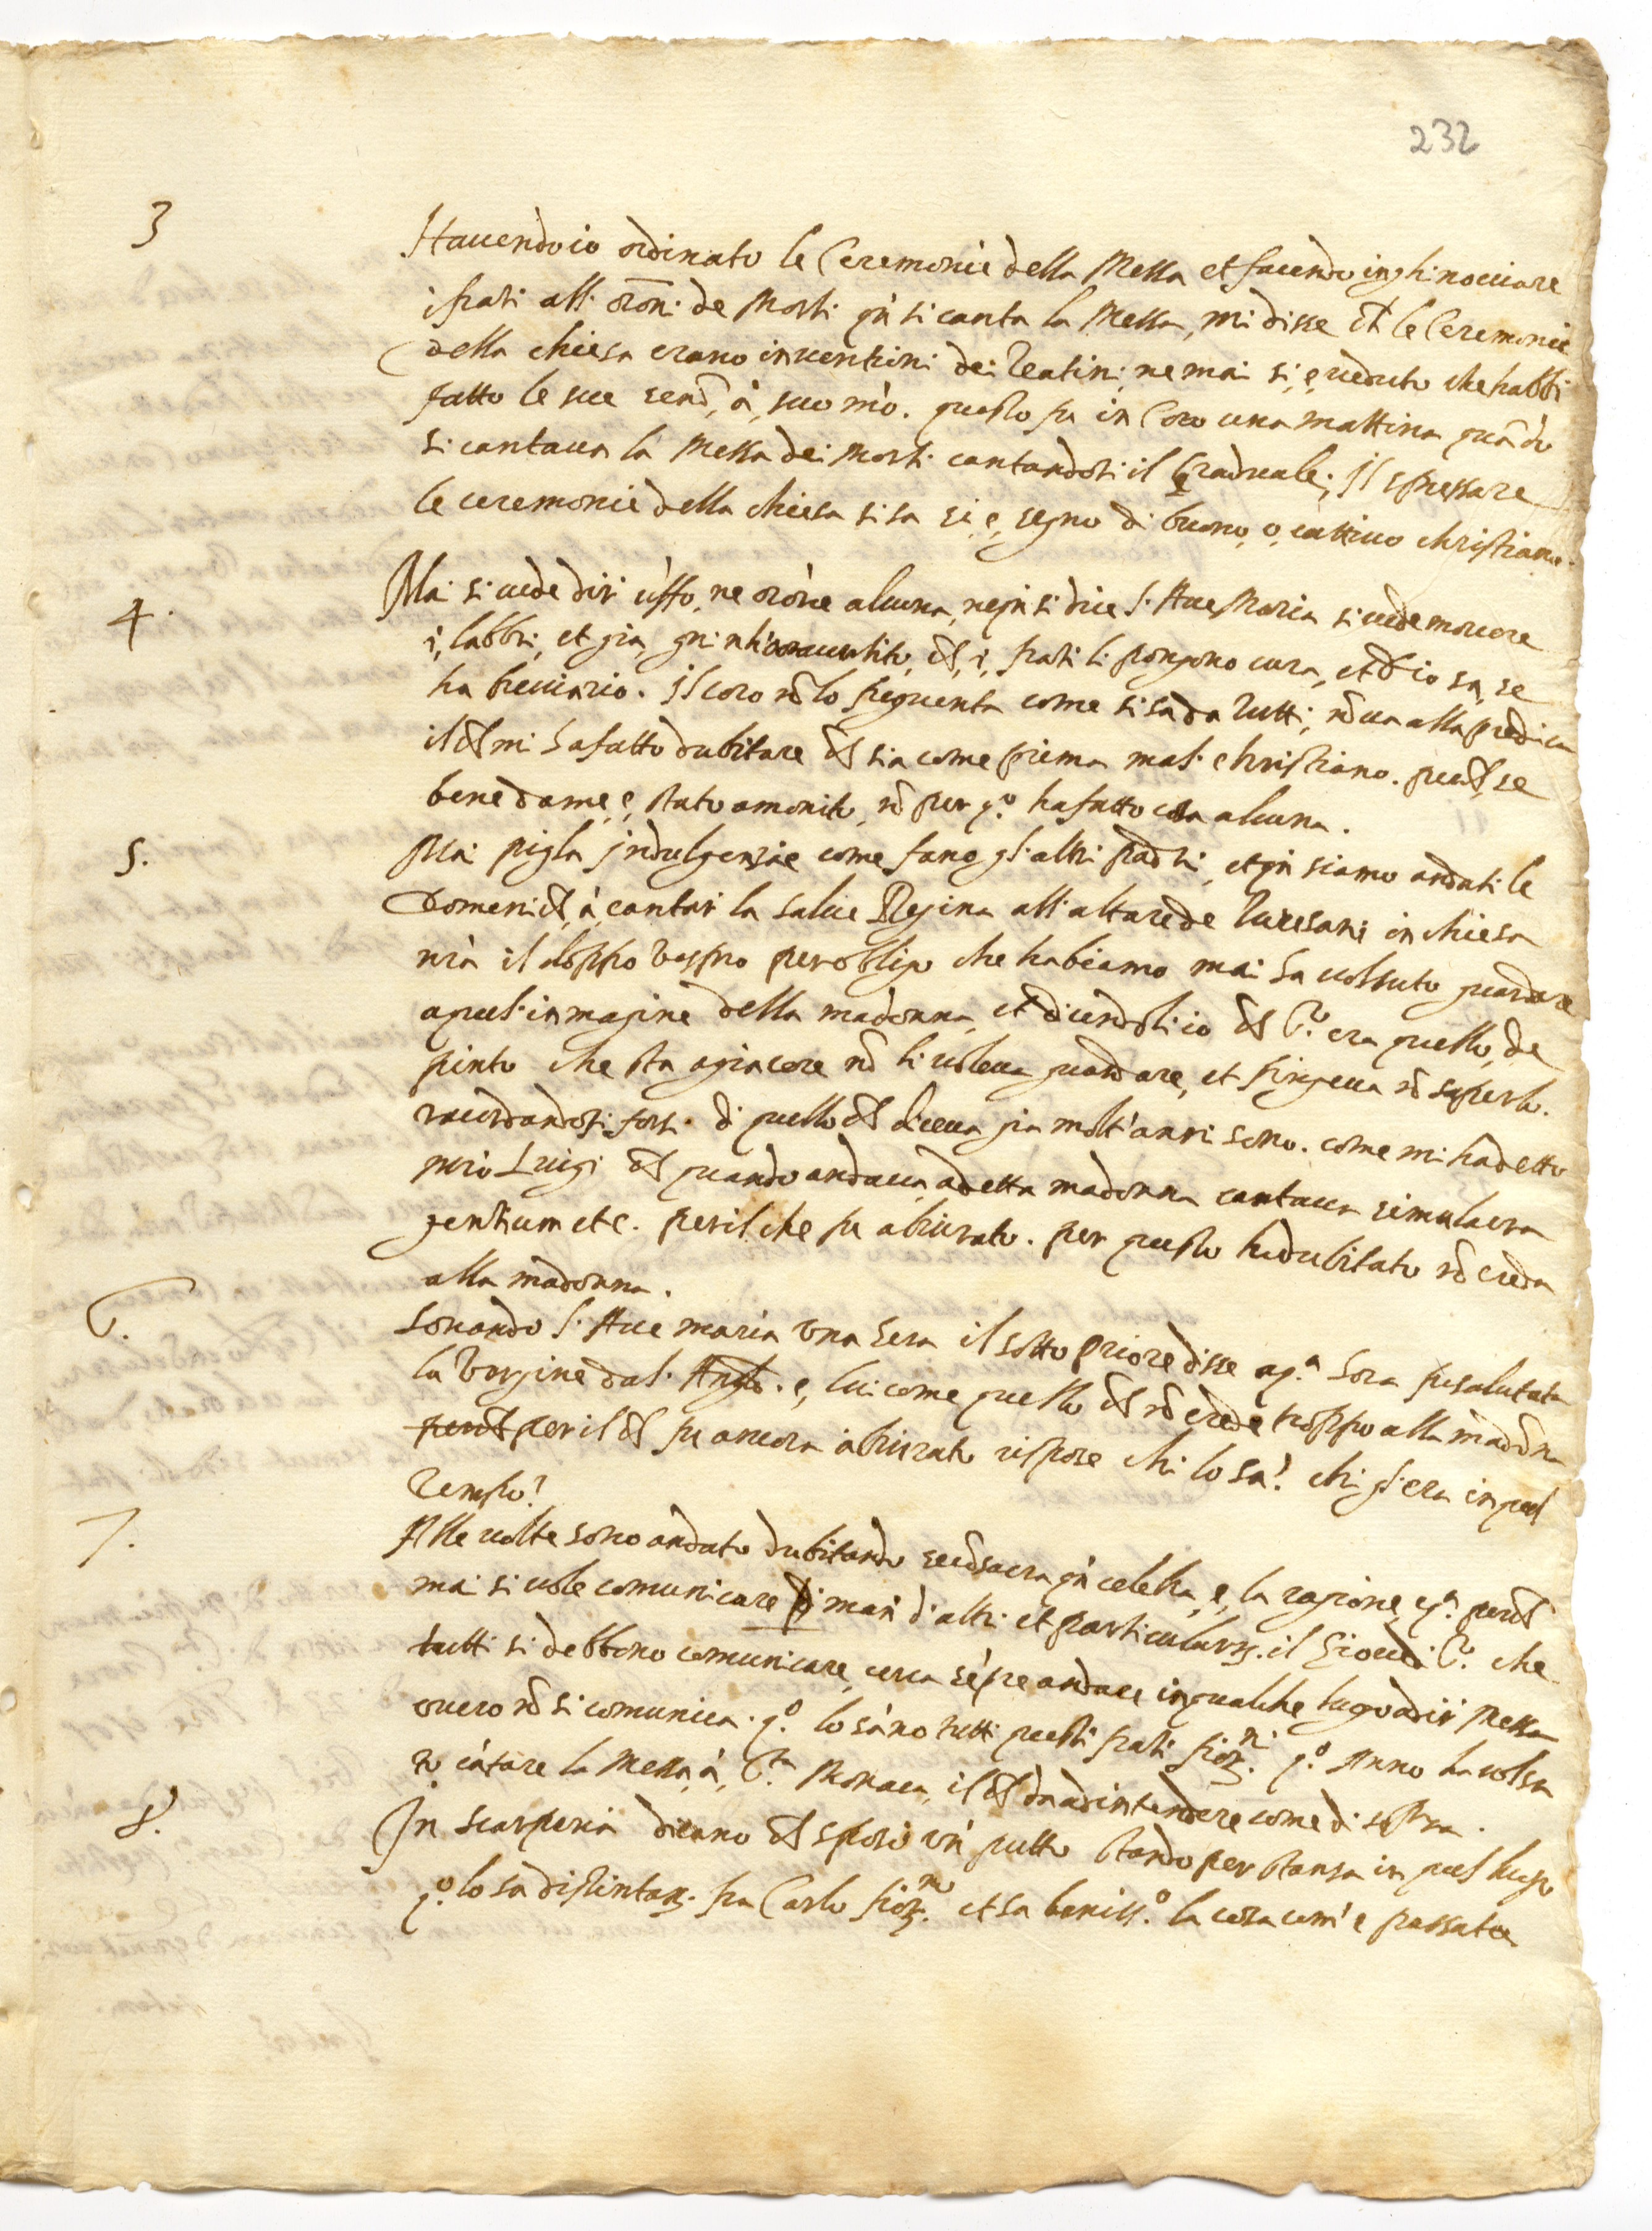 232
3 Havendo io ordinato le Ceremonie della Messa et facendo inghinocciare
i frati all' orõni de Morti qñ si canta la Messa, mi disse ch̃ le Ceremonie
della chiesa erano inventioni dei Teatini, ne mai si, e, veduto che habbi
fatto le sue à, suo mõ. questo fu in Coro una mattina quãdo
si cantava la Messa dei Morti cantandosi il Graduale; Il spressare
le ceremonie della chiesa si sa si, e, segno di buono, o, cattivo christiano.
4. Mai si vede dir uffo, ne orõne alcuna, ne qñ si dice l'Ave Maria si vede movere
i, labbri, et gia ch̃, i, frati li pongono cura, et Dio sa, se
ha breviario. Il coro nõ lo frequenta come si sa da tutti, nõ va alla predica
il ch̃ mi ha fatto dubitare ch̃ sia come prima mal christiano. perch̃, se
bene da me, e, stato amonito, nõ per q.º ha fatto cosa alcuna.
5. Mai pigla indulgenzie come fano gl'altri padri, et qñ siamo andati le
Domenich̃, à, cantar la Salve Regina all' altare de in chiesa
nrã il doppo vespro per obligo che habiamo mai ha volsuto guardare
a quel' inmagine della madonna, et dicendoli io ch̃ era quello, de
pinto che sta a giacere nõ li voleva guardare, et fingeva nõ saperlo.
racordandosi forsi di quello ch̃ diceva gia molt' anni sono. come mi ha detto
Luigi ch̃ quando andava a detta madonna cantava simulacra
gentium etc. per il che fu abiurato. per questo ha dubitato nõ creda
alla madonna.
6. Sonando l' Ave maria una sera il sotto priore disse a q.ª hora fu salutata
la Vergine dal' Anglo. e, lui come quello ch̃ nõ crede troppo alla madõna
perch̃ per il ch̃ fu ancora abiurato rispose chi lo sa? chi gl'era in quel
tempo?
7. Alle volte sono andato dubitando se cõsacra qñ celebra, e, la ragione, e, q.ª perch̃
mai si vole comunicare di man d'altri et particularm. il Giovedi S.º che
tutti si debbono comunicare, cerca sẽpre andare in qualche lugo a dir Messa
overo nõ si comunica. q.º lo sãno tutti questi frati fior.ni q.º Anno ha volsu
to cãtare la Messa, à, S.ta Monaca, il ch̃ da ad intendere come di sopra.
8. In Scarperia dicano ch̃ sposò un putto stando per stanza in quel lugo
q.º lo sa distintam. fra Carlo fior.no et sa beniss.º la cosa com' e passata